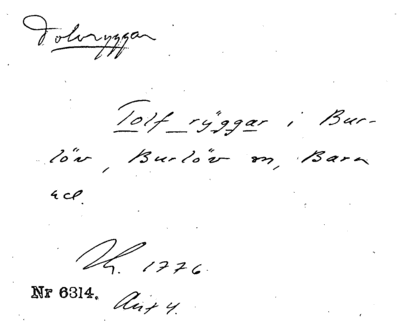 Tolvryggar
Tolf ryggar i Bur-
löv, Burlöv sn, Bara
hd.
1776.
Nr 6314.